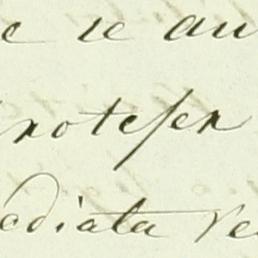 e se au
notesen
ediata ve